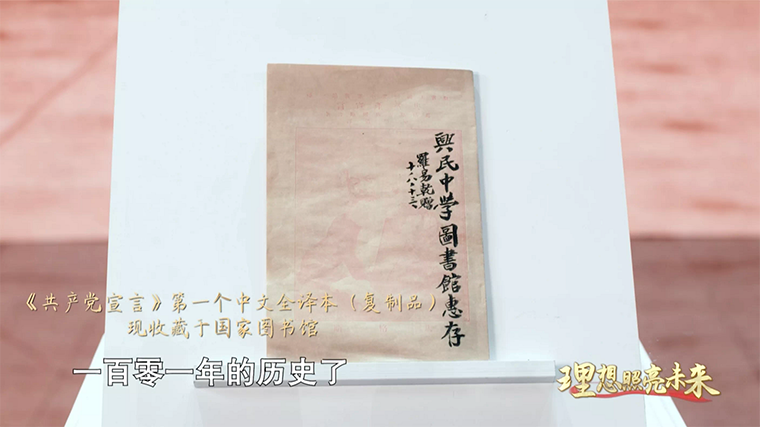 興民中学圖書館惠存
羅易乾贈
十八、十二、
《共产党宣言》第一个中文全译本（复制品）
现收藏于国家图书馆
一百零一年的历史了
理想照亮未来